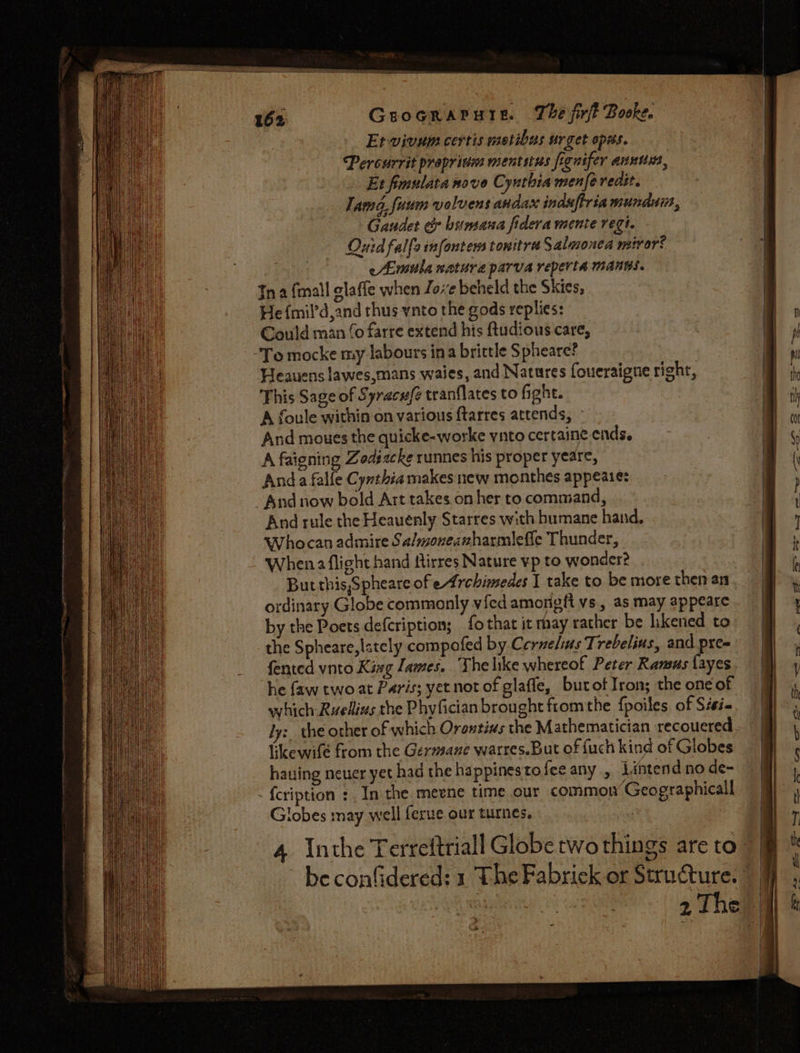 162 GEOGRAPHIE. The firſt Booke.
Et vivum certis motibus urget opus.
Percurrit proprium mentitus ſignifer annum,
Et ſimulata novo Cynthia menſe redit.
Iamq, ſuum volvens audax induſtria mundum,
Gaudet & humana ſidera mente regi.
Quid falſo inſontem tonitru Salmonea miror?
Æmula naturæ parva reperta manus.
In a ſmall glaſſe when Iove beheld the Skies,
He ſmil'd, and thus vnto the gods replies:
Could man ſo farre extend his ſtudious care,
To mocke my labours in a brittle Spheare?
Heauens lawes, mans waies, and Natures ſoueraigne right,
This Sage of Syracuſe tranſlates to ſight.
A ſoule within on various ſtarres attends,
And moues the quicke-worke vnto certaine ends.
A faigning Zodiacke runnes his proper yeare,
And a falſe Cynthia makes new monthes appeare:
And now bold Art takes on her to command,
And rule the Heauenly Starres with humane hand.
Who can admire Salmoneas harmleſſe Thunder,
When a ſlight hand ſtirres Nature vp to wonder?
But this Spheare of Archimedes I take to be more then an
ordinary Globe commonly vſed amongſt vs, as may appeare
by the Poets deſcription; ſo that it may rather be likened to
the Spheare, lately compoſed by Cornelius Trebelius, and pre-
ſented vnto King Iames. The like whereof Peter Ramus ſayes
he ſaw two at Paris; yet not of glaſſe, but of Iron; the one of
which Ruellius the Phyſician brought from the ſpoiles of Sici-
ly: the other of which Orontius the Mathematician recouered
likewiſe from the Germane warres. But of ſuch kind of Globes
hauing neuer yet had the happines to ſee any, I intend no de-
ſcription: In the meene time our common Geographicall
Globes may well ſerue our turnes.
4 In the Terreſtriall Globe two things are to
be conſidered: 1 The Fabrick or Structure.
2 The